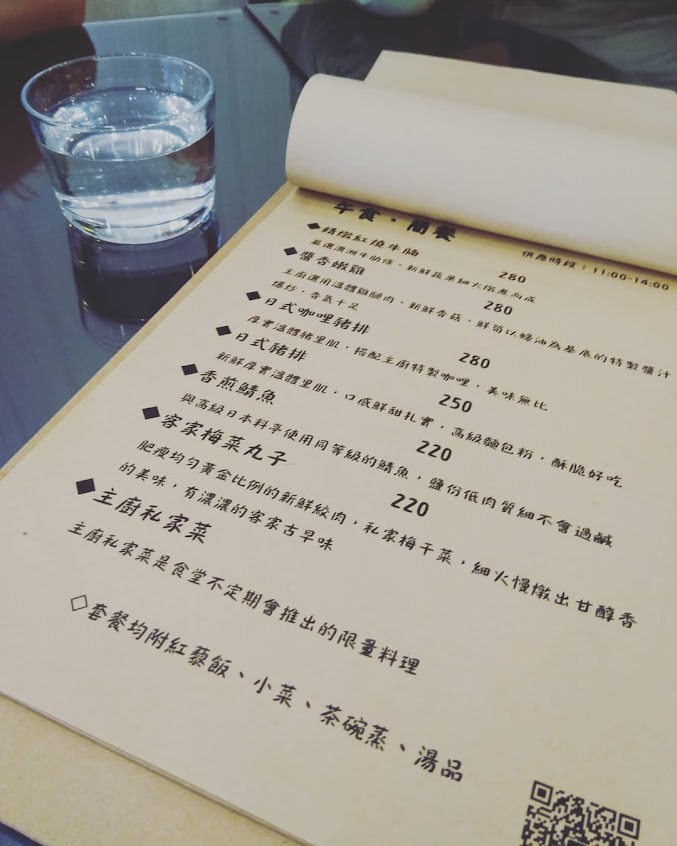 午食·簡餐
供應時段：11:00-14:00
◆精燉紅燒牛腩 280
嚴選澳洲牛肋條、新鮮蔬果細火燉煮而成
◆醬香嫩雞 280
主廚選用溫體雞腿肉、新鮮香菇、鮮筍以蠔油為基底的特製醬汁
爆炒，香氣十足
◆日式咖哩豬排 280
厚實溫體豬里肌，搭配主廚特製咖哩，美味無比
◆日式豬排 250
新鮮厚實溫體里肌，口感鮮甜扎實，高級麵包粉，酥脆好吃
◆香煎鯖魚 220
與高級日本料亭使用同等級的鯖魚，鹽份低肉質細不會過鹹
◆客家梅菜丸子 220
肥瘦均勻黃金比例的新鮮絞肉，私家梅干菜，細火慢燉出甘醇香
的美味，有濃濃的客家古早味
◆主廚私家菜
主廚私家菜是食堂不定期會推出的限量料理
◇套餐均附紅藜飯、小菜、茶碗蒸、湯品